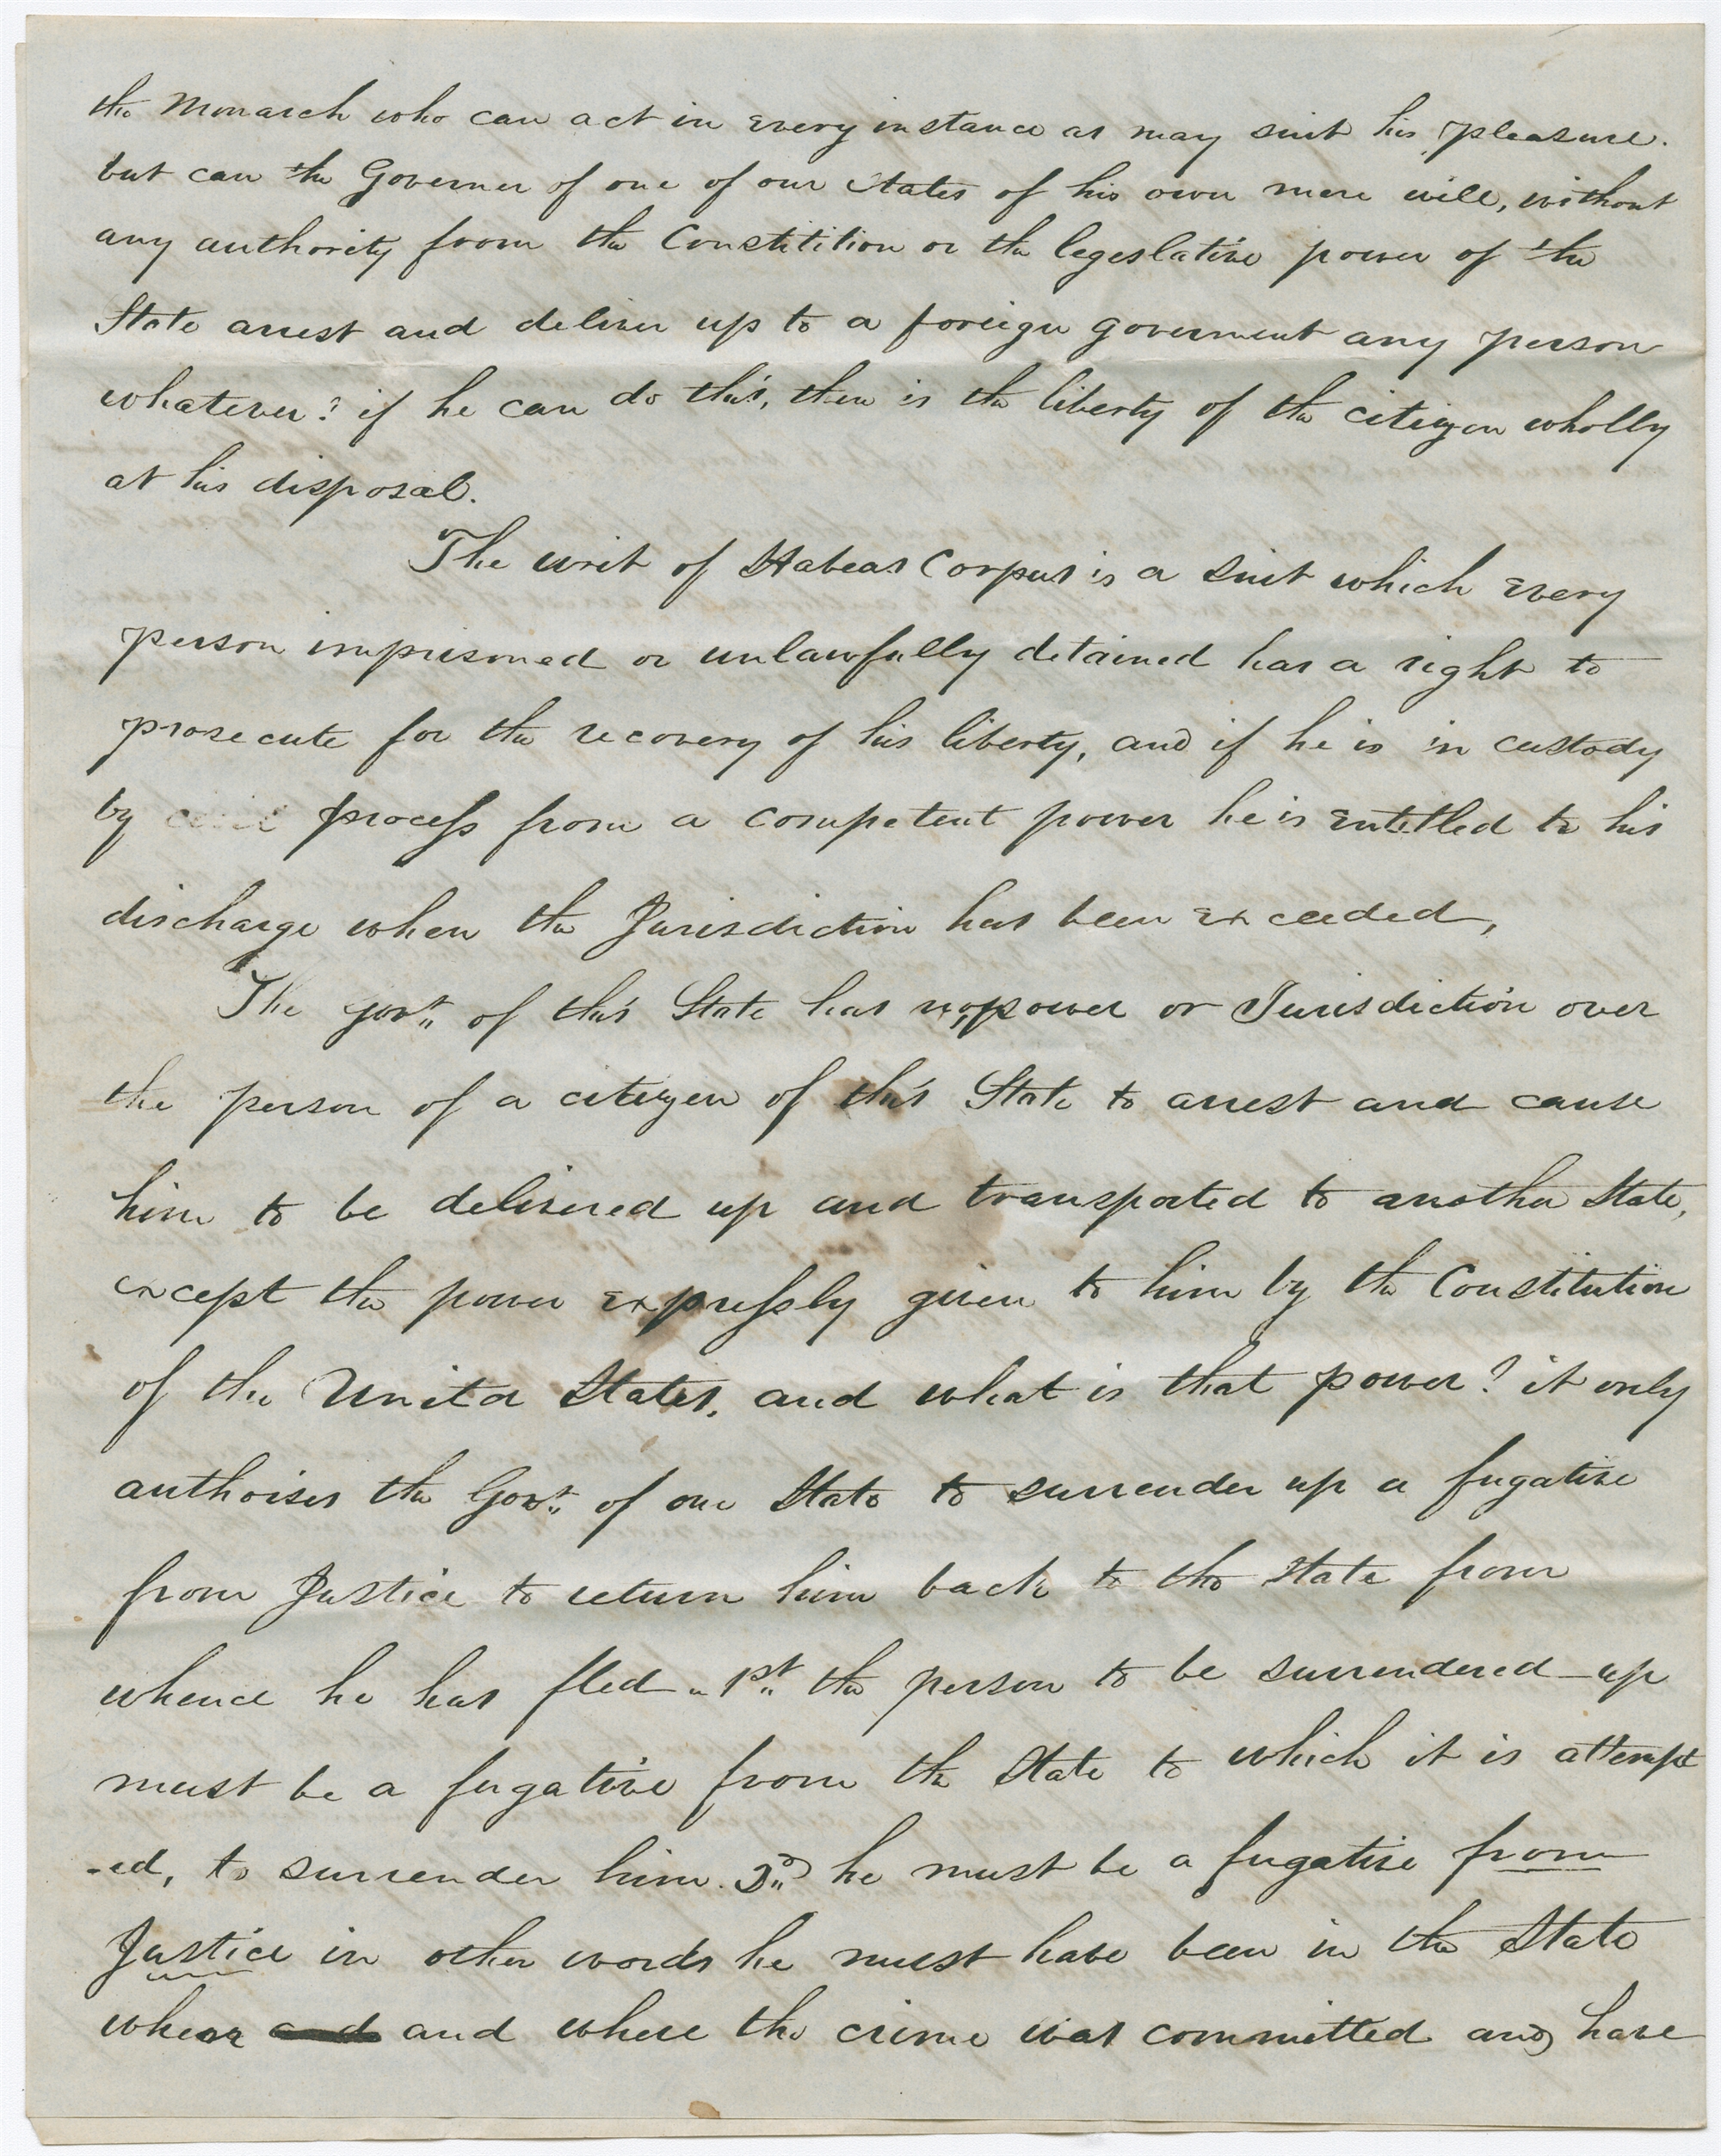 the Monarch who can act in every instance as may suit his pleasure.
but can the Governer of one of our States of his own mere will, without
any authority from the Constitition or the legeslative power of the
State arrest and deliver up to a foreign goverment any person
whatever? if he can do this, then is the liberty of the citizen wholly
at his disposal.
The writ of Habeas Corpus is a suit which every
person imprisoned or unlawfully detained has a right to
prosecute for the recovery of his liberty, and if he is in custody
by civil process from a competent power he is entitled to his
discharge when the Jurisdiction has been exceeded,
The govr. of this State has no power or Jurisdiction over
the person of a citizen of this State to arrest and cause
him to be delivered up and transported to another State,
except the power expressly given to him by the Constitution
of the United States, and what is that power? it only
authorises the Govr. of one State to surrender up a fugative
from Justice to return him back to the State from
whence he has fled - 1st. the person to be surrendered up
must be a fugative from the State to which it is attempt
-ed, to surrender him. he must be a fugative from
Justice in other words he must have been in the State
when and and where the crime was committed and have